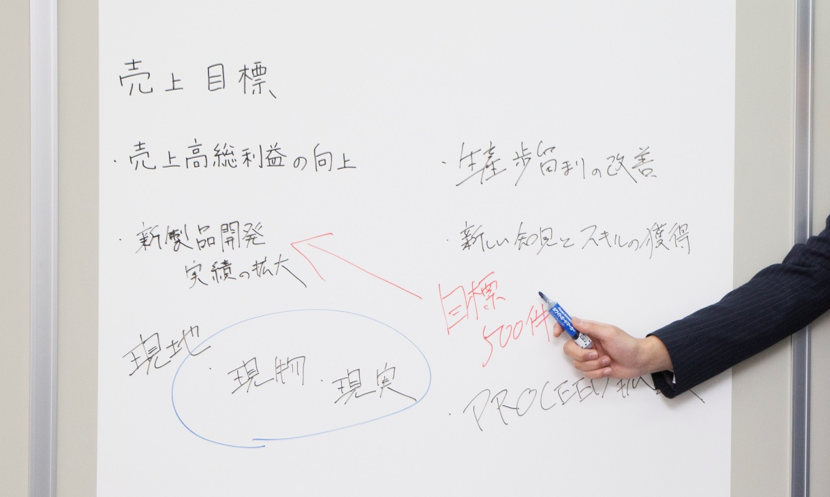 売上目標
・売上高総利益の向上
・新製品開発
実績の拡大
現地・現物・現実
・生産歩留まりの改善
・新しい知見とスキルの獲得
目標
500件
・PROCEED拡